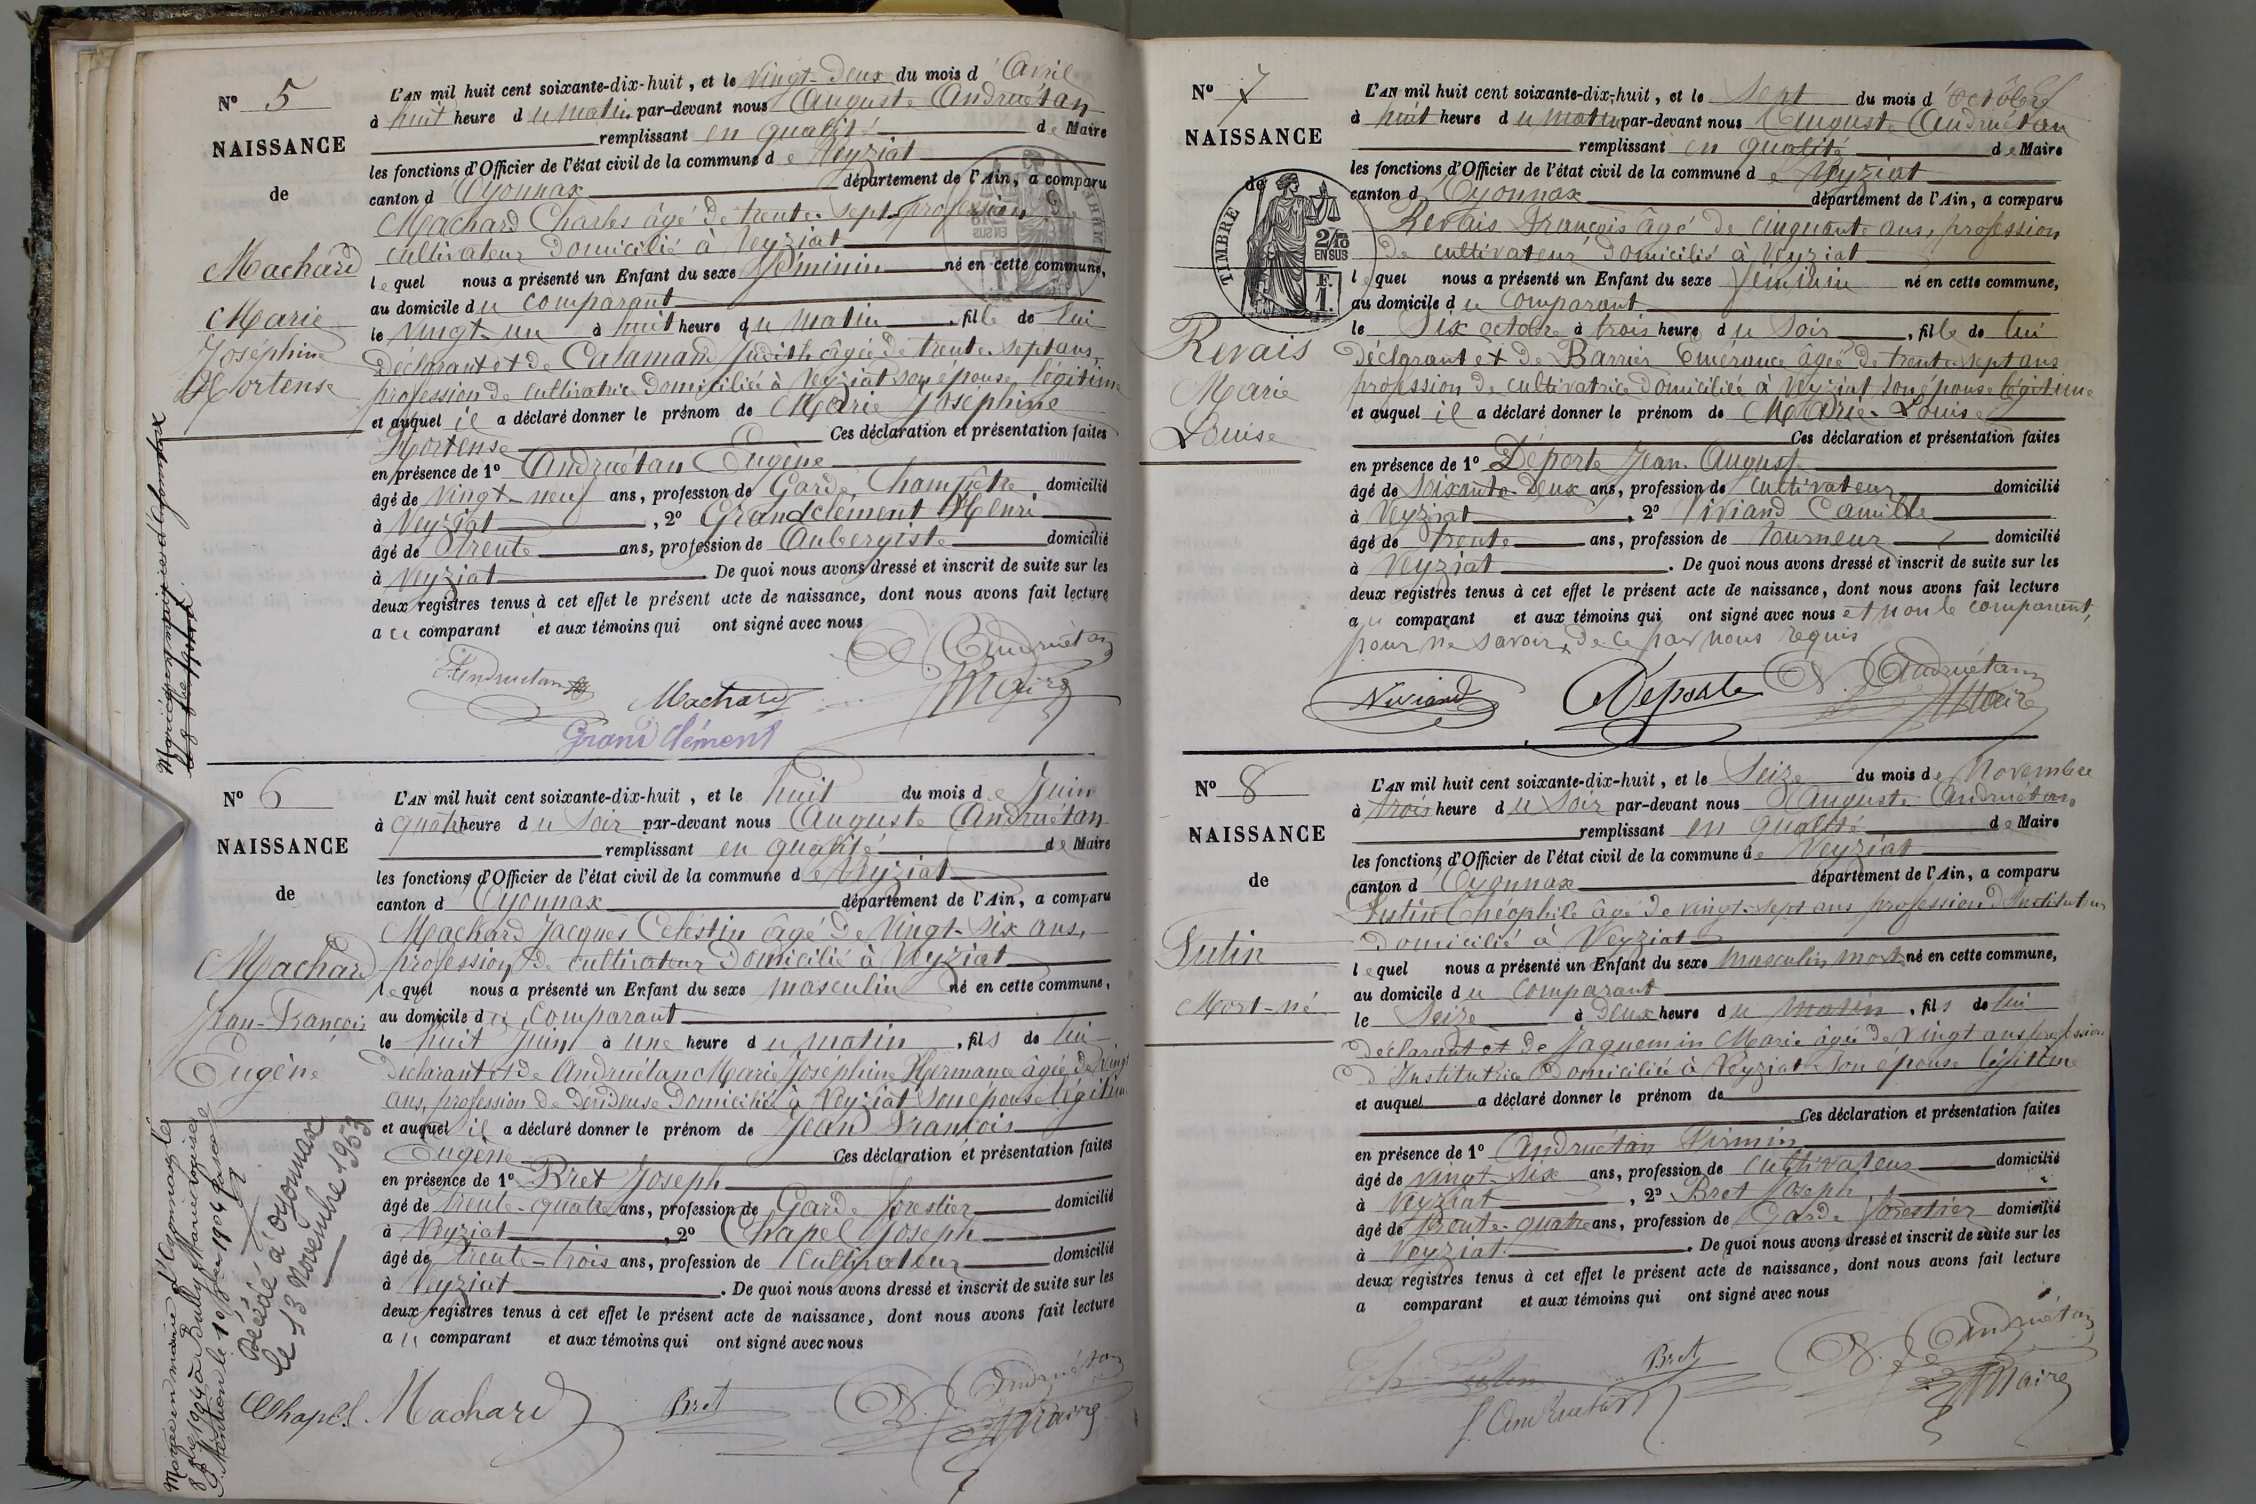 N° 5
NAISSANCE
de
Machard
Marie
Joséphine
Hortense
L'AN mil huit cent soixante-dix-huit, et le vingt-deux du mois d'Avril
à huit heure du matin par-devant nous Auguste Andruétan
remplissant en qualité de Maire
les fonctions d'Officier de l'état civil de la commune de Veyziat
canton d'Oyonnax département de l'Ain, a comparu
Machard Charles âgé de trente-sept, profession de
cultivateur domicilié à Veyziat
lequel nous a présenté un Enfant du sexe féminin né en cette commune,
au domicile du comparant
le vingt-un à huit heure du matin, fille de lui
déclarant et de Calamand Judith âgée de trente-sept ans,
profession de cultivatrice domiciliée à Veyziat son épouse légitime
et auquel il a déclaré donner le prénom de Marie Joséphine
Hortense Ces déclaration et présentation faites
en présence de 1° Andruétan Eugène
âgé de vingt-neuf ans, profession de Garde Champêtre domicilié
à Veyziat, 2° Grandclément Henri
âgé de trente ans, profession de Aubergiste domicilié
à Veyziat. De quoi nous avons dressé et inscrit de suite sur les
deux registres tenus à cet effet le présent acte de naissance, dont nous avons fait lecture
au comparant et aux témoins qui ont signé avec nous
Andruétan
Andruétan Machard Maire
Grandclément
N° 6
NAISSANCE
de
Machard
Jean-François
Eugène
Décédé à Oyonnax
le 13 Novembre 1953
L'AN mil huit cent soixante-dix-huit, et le huit du mois de Juin
à quatre heure du soir par-devant nous Auguste Andruétan
remplissant en qualité de Maire
les fonctions d'Officier de l'état civil de la commune de Veyziat
canton d'Oyonnax département de l'Ain, a comparu
Machard Jacques Célestin âgé de vingt-six ans,
profession de cultivateur domicilié à Veyziat
lequel nous a présenté un Enfant du sexe masculin né en cette commune,
au domicile du comparant
le huit Juin à une heure du matin, fils de lui
déclarant et de Andruétan Marie Joséphine Hermance âgée de vingt
ans, profession de dévideuse domiciliée à Veyziat son épouse légitime
et auquel il a déclaré donner le prénom de Jean François
Eugène Ces déclaration et présentation faites
en présence de 1° Bret Joseph
âgé de trente-quatre ans, profession de Garde forestier domicilié
à Veyziat, 2° Chapel Joseph
âgé de trente-trois ans, profession de Cultivateur domicilié
à Veyziat. De quoi nous avons dressé et inscrit de suite sur les
deux registres tenus à cet effet le présent acte de naissance, dont nous avons fait lecture
au comparant et aux témoins qui ont signé avec nous
Chapel Machard Bret Andruétan
Maire
N° 7
NAISSANCE
de
TIMBRE
2/10
EN SUS
F.
1.
Revais
Marie
Louise
L'AN mil huit cent soixante-dix-huit, et le sept du mois d'octobre
à huit heure du matin par-devant nous Auguste Andruétan
remplissant en qualité de Maire
les fonctions d'Officier de l'état civil de la commune de Veyziat
canton d'Oyonnax département de l'Ain, a comparu
Revais François âgé de cinquante ans, profession
de cultivateur domicilié à Veyziat
lequel nous a présenté un Enfant du sexe féminin né en cette commune,
au domicile du comparant
le six octobre à trois heure du soir, fille de lui
déclarant et de Barrier Emérance âgée de trente-sept ans
profession de cultivatrice domiciliée à Veyziat son épouse légitime
et auquel il a déclaré donner le prénom de Marie-Louise
Ces déclaration et présentation faites
en présence de 1° Déporte Jean-Auguste
âgé de soixante-deux ans, profession de cultivateur domicilié
à Veyziat, 2° Viviand Camille
âgé de trente ans, profession de Tourneur domicilié
à Veyziat. De quoi nous avons dressé et inscrit de suite sur les
deux registres tenus à cet effet le présent acte de naissance, dont nous avons fait lecture
au comparant et aux témoins qui ont signé avec nous et non le comparant,
pour ne savoir, de ce par nous requis
Viviand Déporte Andruétan
Maire
N° 8
NAISSANCE
de
Lutin
Mort-né
L'AN mil huit cent soixante-dix-huit, et le seize du mois de Novembre
à trois heure du soir par-devant nous Auguste Andruétan
remplissant en qualité de Maire
les fonctions d'Officier de l'état civil de la commune de Veyziat
canton d'Oyonnax département de l'Ain, a comparu
Théophile âgé de vingt-sept ans profession d'Instituteur
domicilié à Veyziat
lequel nous a présenté un Enfant du sexe masculin mort né en cette commune,
au domicile du comparant
le seize à deux heure du matin, fils de lui
déclarant et de Jaquemin Marie âgée de vingt ans profession
d'Institutrice domiciliée à Veyziat son épouse légitime
et auquel a déclaré donner le prénom de
Ces déclaration et présentation faites
en présence de 1° Andruétan Firmin
âgé de vingt-six ans, profession de cultivateur domicilié
à Veyziat, 2° Bret Joseph
âgé de trente-quatre ans, profession de Garde forestier domicilié
à Veyziat. De quoi nous avons dressé et inscrit de suite sur les
deux registres tenus à cet effet le présent acte de naissance, dont nous avons fait lecture
a comparant et aux témoins qui ont signé avec nous
Bret Andruétan
F. Andruétan Maire